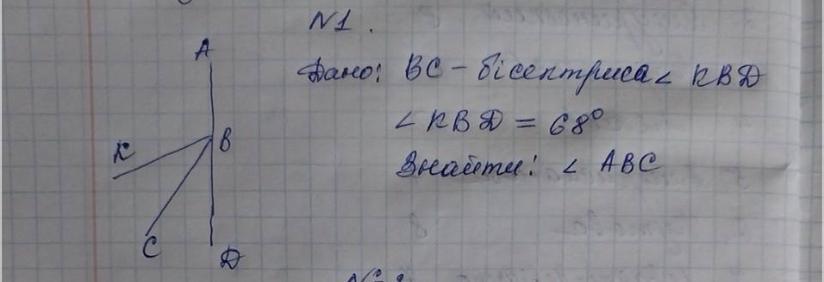 N1.
A
Дано: BC - бісектриса ∠ KBD
∠ KBD = 68°
K
B
Знайти: ∠ ABC
C
D